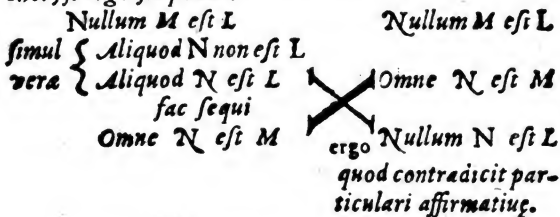 Nullum M eſt L
ſimul
veræ
Aliquod N non eſt L
Aliquod N eſt L
fac ſequi
Omne N eſt M
Nullum M eſt L
Omne N eſt M
ergo Nullum N eſt L
quod contradicit par-
ticulari affirmatiuę.